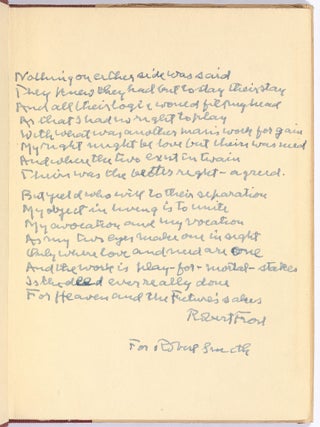 Nothing on either side was said
They knew they had but to stay their stay
And all their logic would fill my head
As that I had no right to play
With what was another man's work for gain
My right might be love but theirs was need
And where the two exist in twain
Theirs was the better right - agreed.
But yield who will to their separation
My object in living is to unite
My avocation and my vocation
As my two eyes make one in sight
Only where love and need are one
And the work is play-for-mortal-stakes
Is the deed ever really done
For Heaven and the Future's sakes
Robert Frost
For Robert